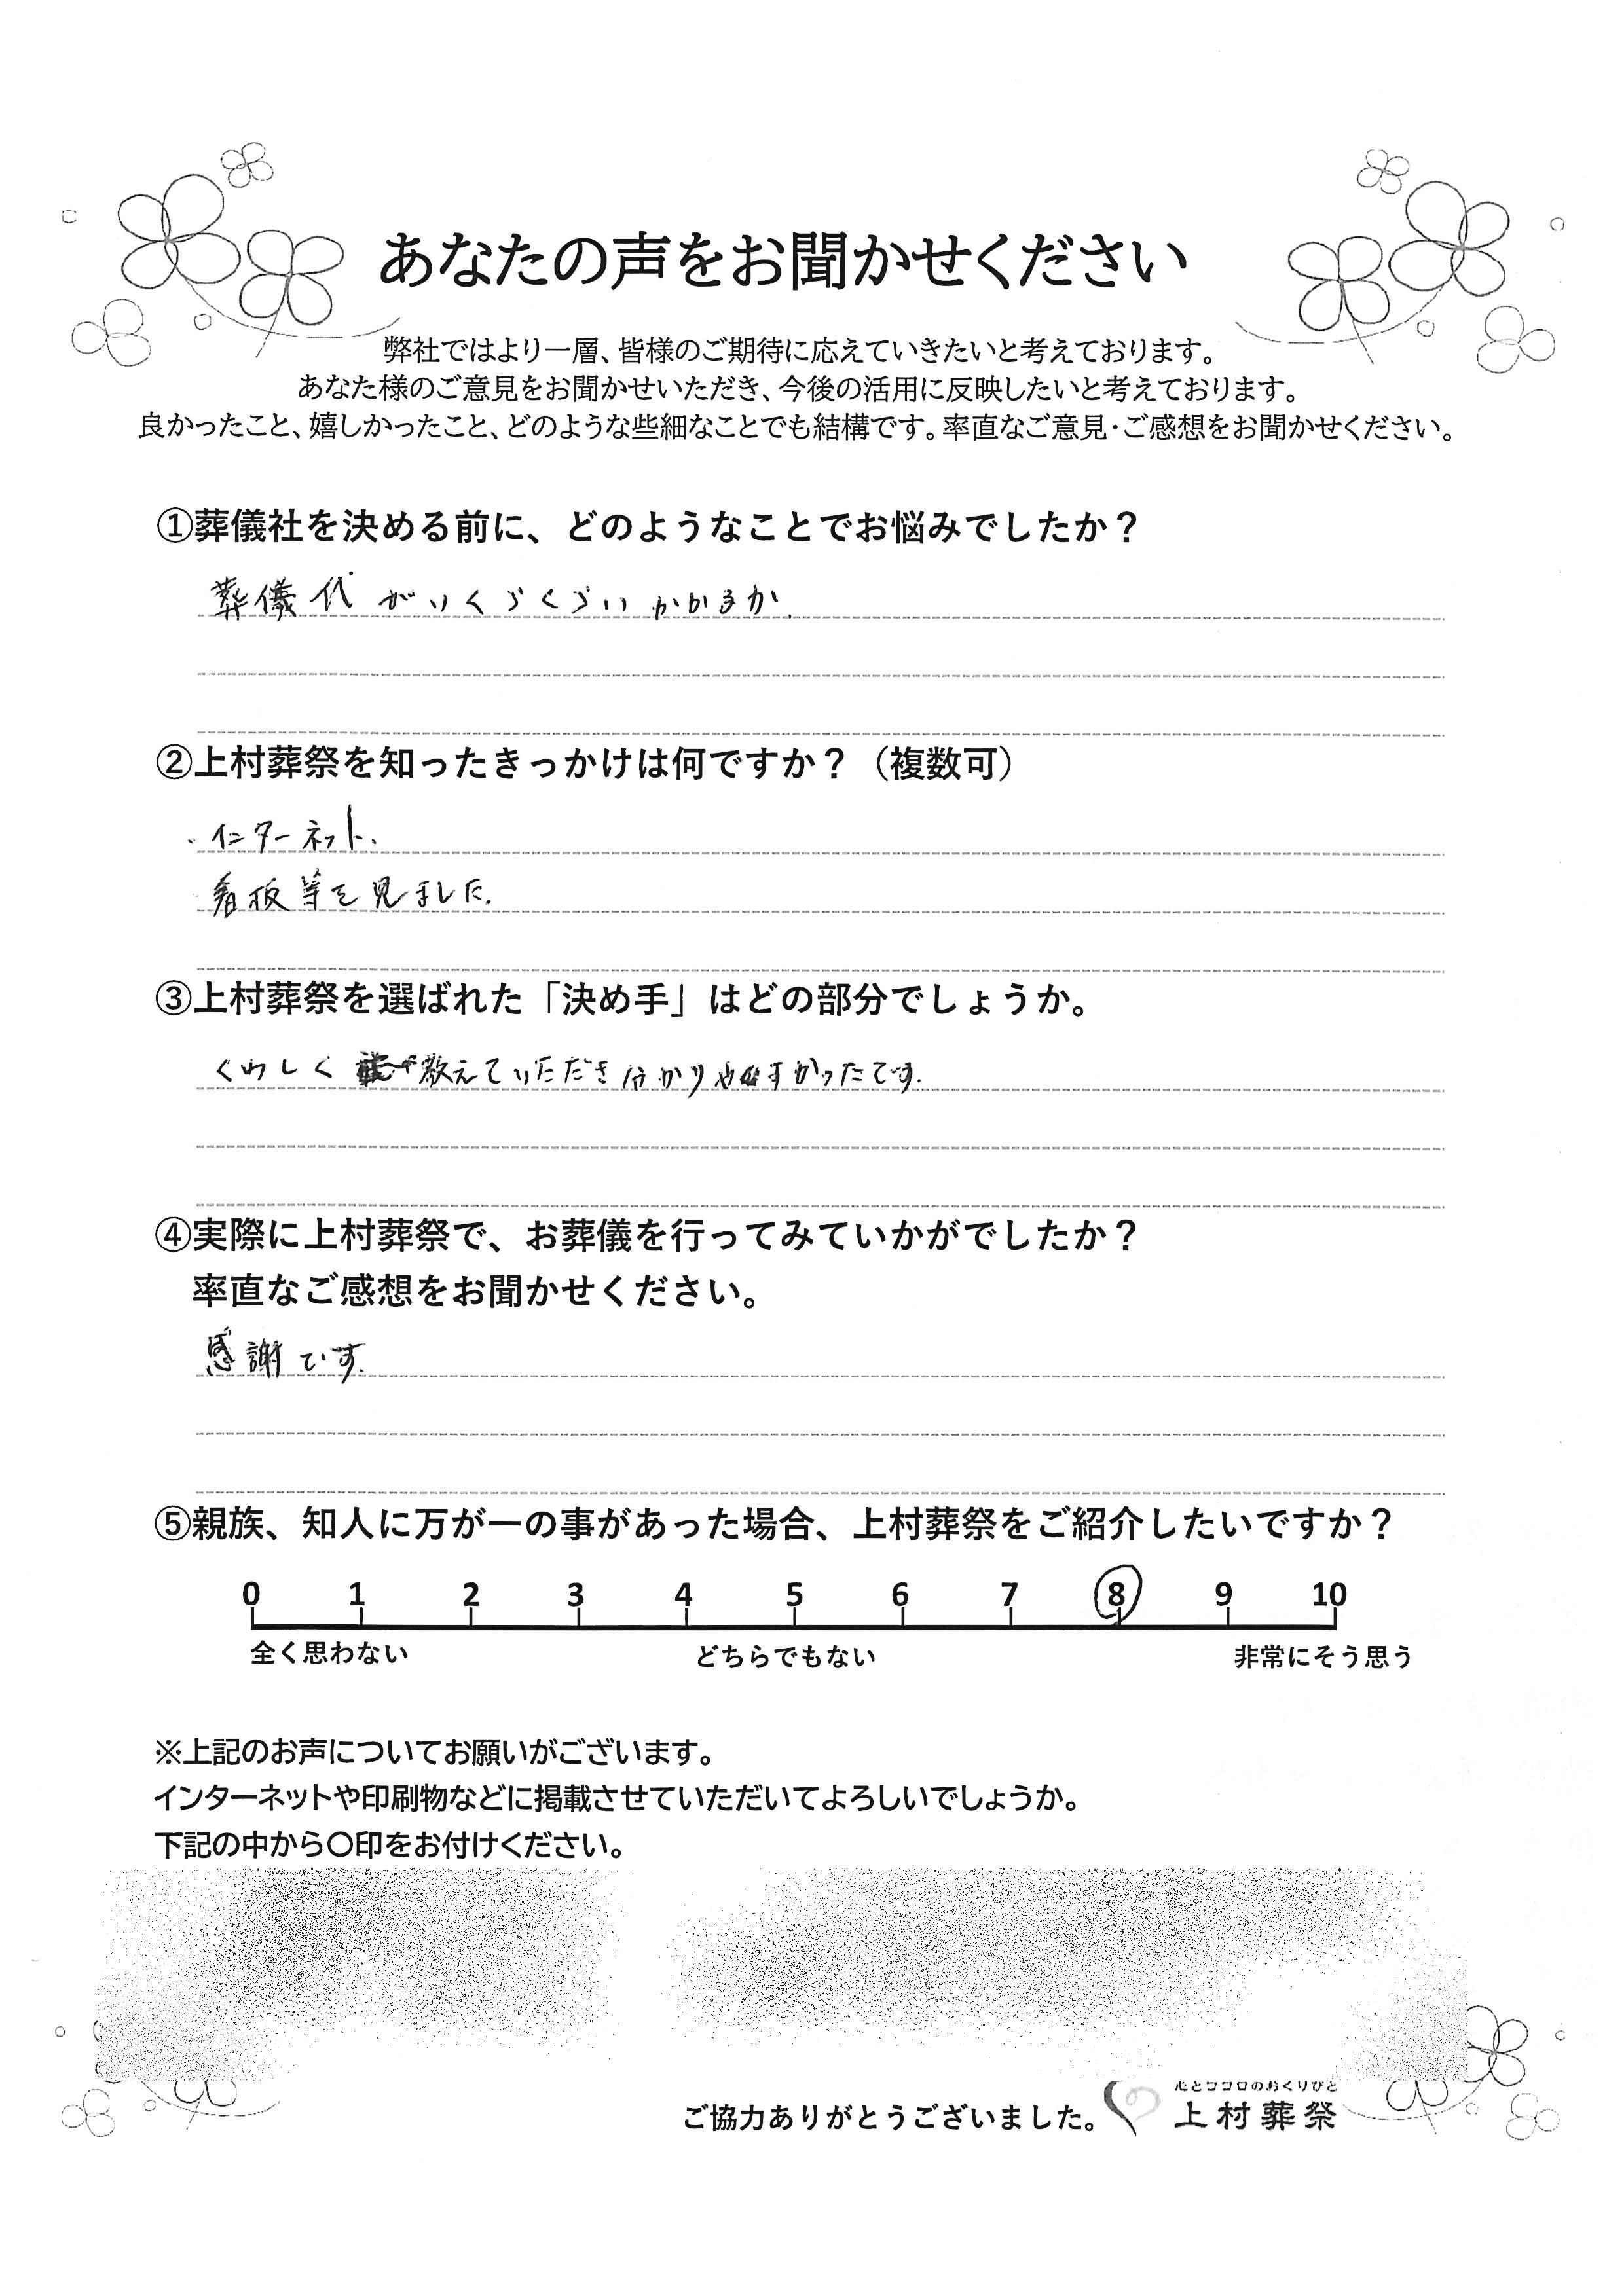 あなたの声をお聞かせください
弊社ではより一層、皆様のご期待に応えていきたいと考えております。
あなた様のご意見をお聞かせいただき、今後の活用に反映したいと考えております。
良かったこと、嬉しかったこと、どのような些細なことでも結構です。率直なご意見・ご感想をお聞かせください。
①葬儀社を決める前に、どのようなことでお悩みでしたか？
葬儀代がいくらくらいかかるか.
②上村葬祭を知ったきっかけは何ですか？（複数可）
・インターネット、
看板等を見ました.
③上村葬祭を選ばれた「決め手」はどの部分でしょうか。
くわしく教えていただき分かりやすかったです.
④実際に上村葬祭で、お葬儀を行ってみていかがでしたか？
率直なご感想をお聞かせください。
感謝です.
⑤親族、知人に万が一の事があった場合、上村葬祭をご紹介したいですか？
0 1 2 3 4 5 6 7 8 9 10
全く思わない どちらでもない 非常にそう思う
※上記のお声についてお願いがございます。
インターネットや印刷物などに掲載させていただいてよろしいでしょうか。
下記の中から〇印をお付けください。
心とココロのおくりびと
ご協力ありがとうございました。 上村葬祭